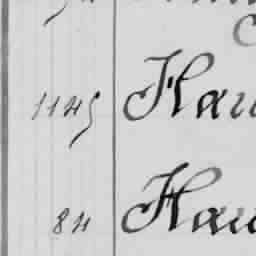 1145 Hau
84 Hau